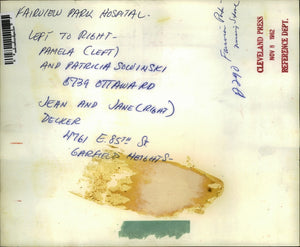 FAIRVIEW PARK HOSPITAL.
LEFT TO RIGHT-
PAMELA (LEFT)
AND PATRICIA SOWINSKI
8739 OTTAWA RD
JEAN AND JANE (RIGHT)
DECKER
4761 E. 85TH St
GARFIELD HEIGHTS-
CLEVELAND PRESS
NOV 8 1962
REFERENCE DEPT.